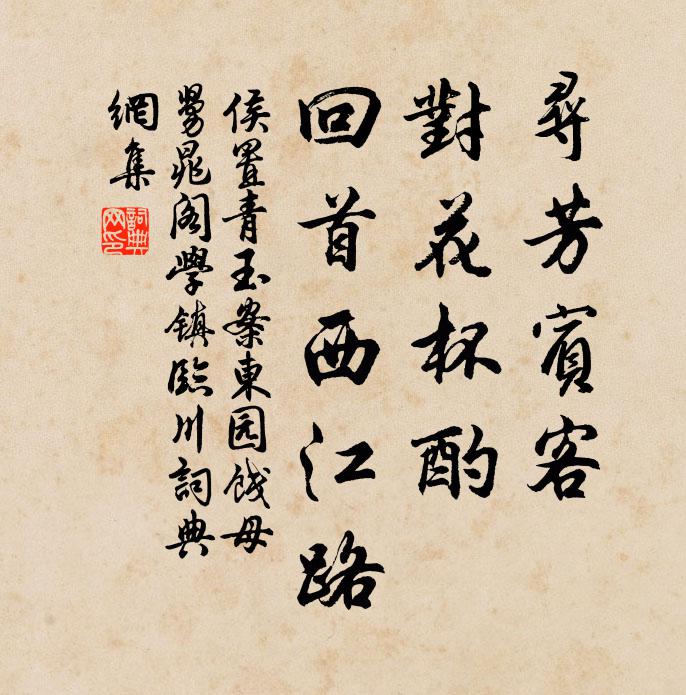 尋芳賓客
對花杯酌
回首西江路
侯置青玉案東园餞母
舅晁阁學镇臨川詞典
網集
詞典网印